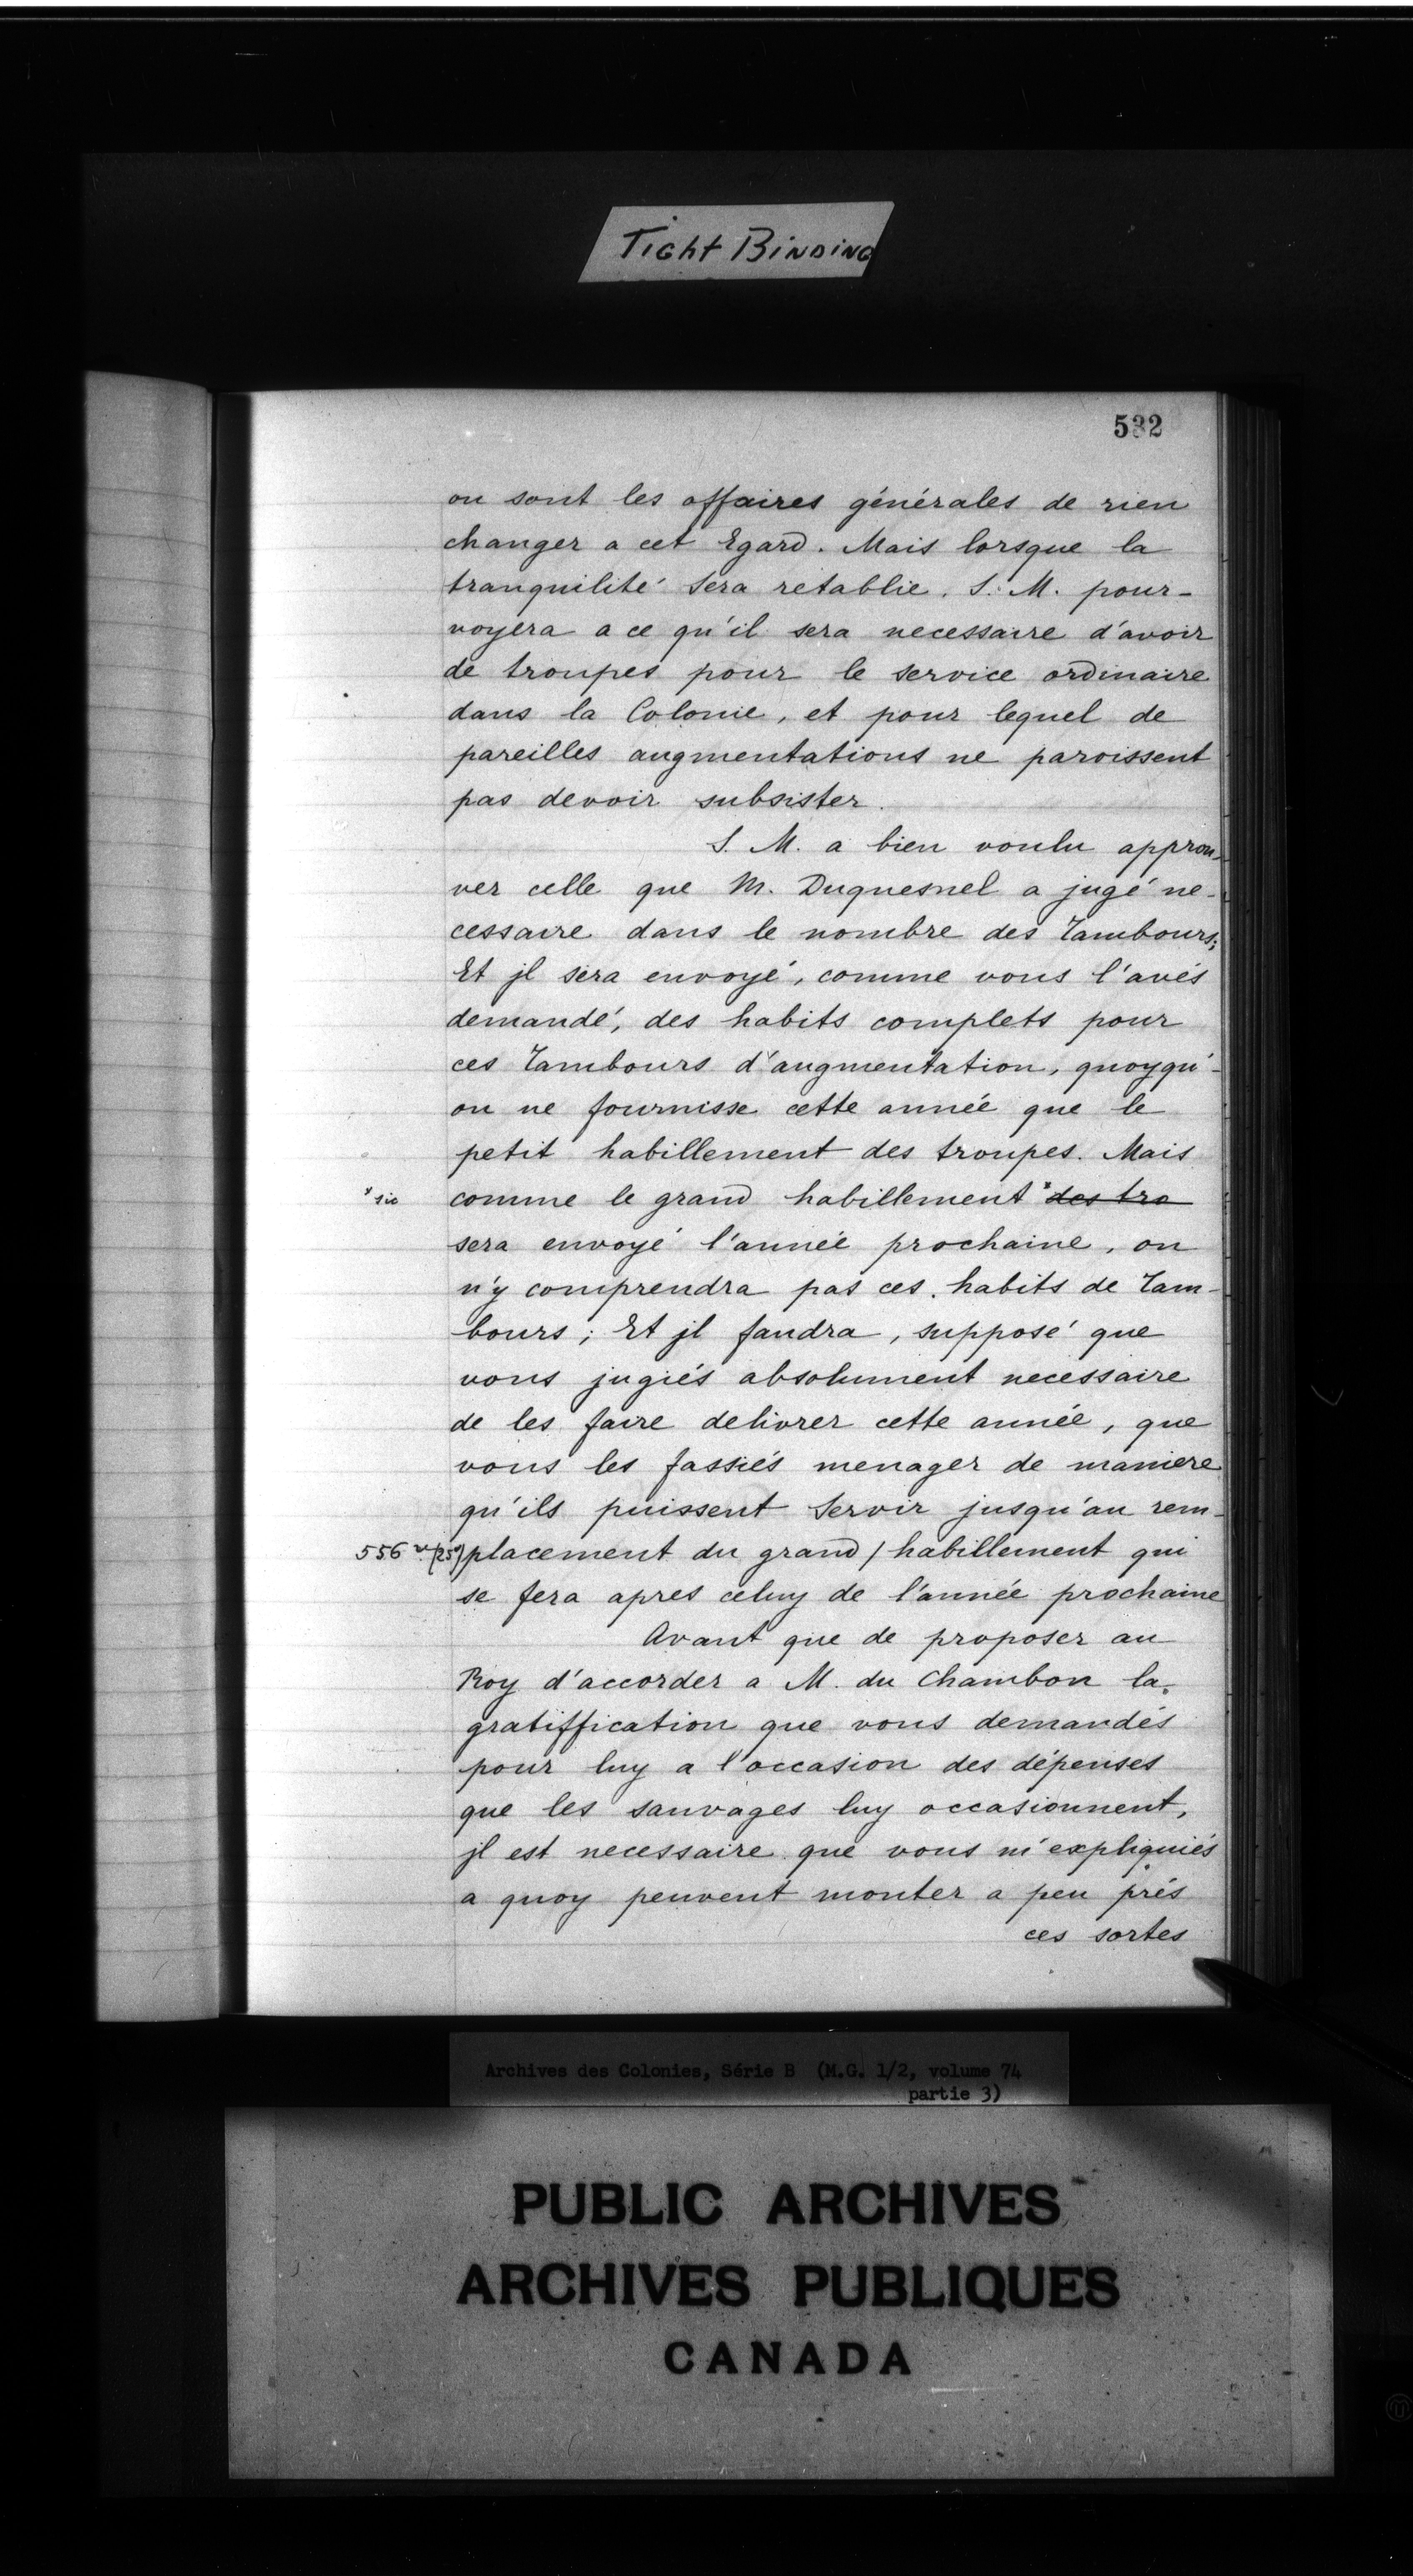 Tight Binding
532
ou sont les affaires générales de rien
changer a cet Egard. Mais lorsque la
tranquilité sera retablie. S. M. pour-
voyera a ce qu'il sera necessaire d'avoir
de troupes pour le service ordinaire
dans la Colonie, et pour lequel de
pareilles augmentations ne paroissent
pas devoir subsister.
S. M. a bien voulu approu-
ver celle que M. Duquesnel a jugé ne-
cessaire dans le nombre des Tambours;
Et jl sera envoyé, comme vous l'avés
demandé, des habits complets pour
ces Tambours d'augmentation, quoyqu'-
on ne fournisse cette année que le
petit habillement des troupes. Mais
* sic comme le grand habillement * des tro
sera envoyé l'année prochaine, on
n'y comprendra pas ces habits de Tam-
bours; Et jl faudra, supposé que
vous jugiés absolument necessaire
de les faire delivrer cette année, que
vous les fassiés menager de maniere
qu'ils puissent servir jusqu'au rem-
556 v. (25) placement du grand / habillement qui
se fera apres celuy de l'année prochaine
Avant que de proposer au
Roy d'accorder a M. du Chambon la
gratiffication que vous demandés
pour luy a l'occasion des dépenses
que les sauvages luy occasionnent,
jl est necessaire que vous m'expliquiés
a quoy peuvent monter a peu prés
ces sortes
Archives des Colonies, Série B (M.G. 1/2, volume 74
partie 3)
PUBLIC ARCHIVES
ARCHIVES PUBLIQUES
CANADA